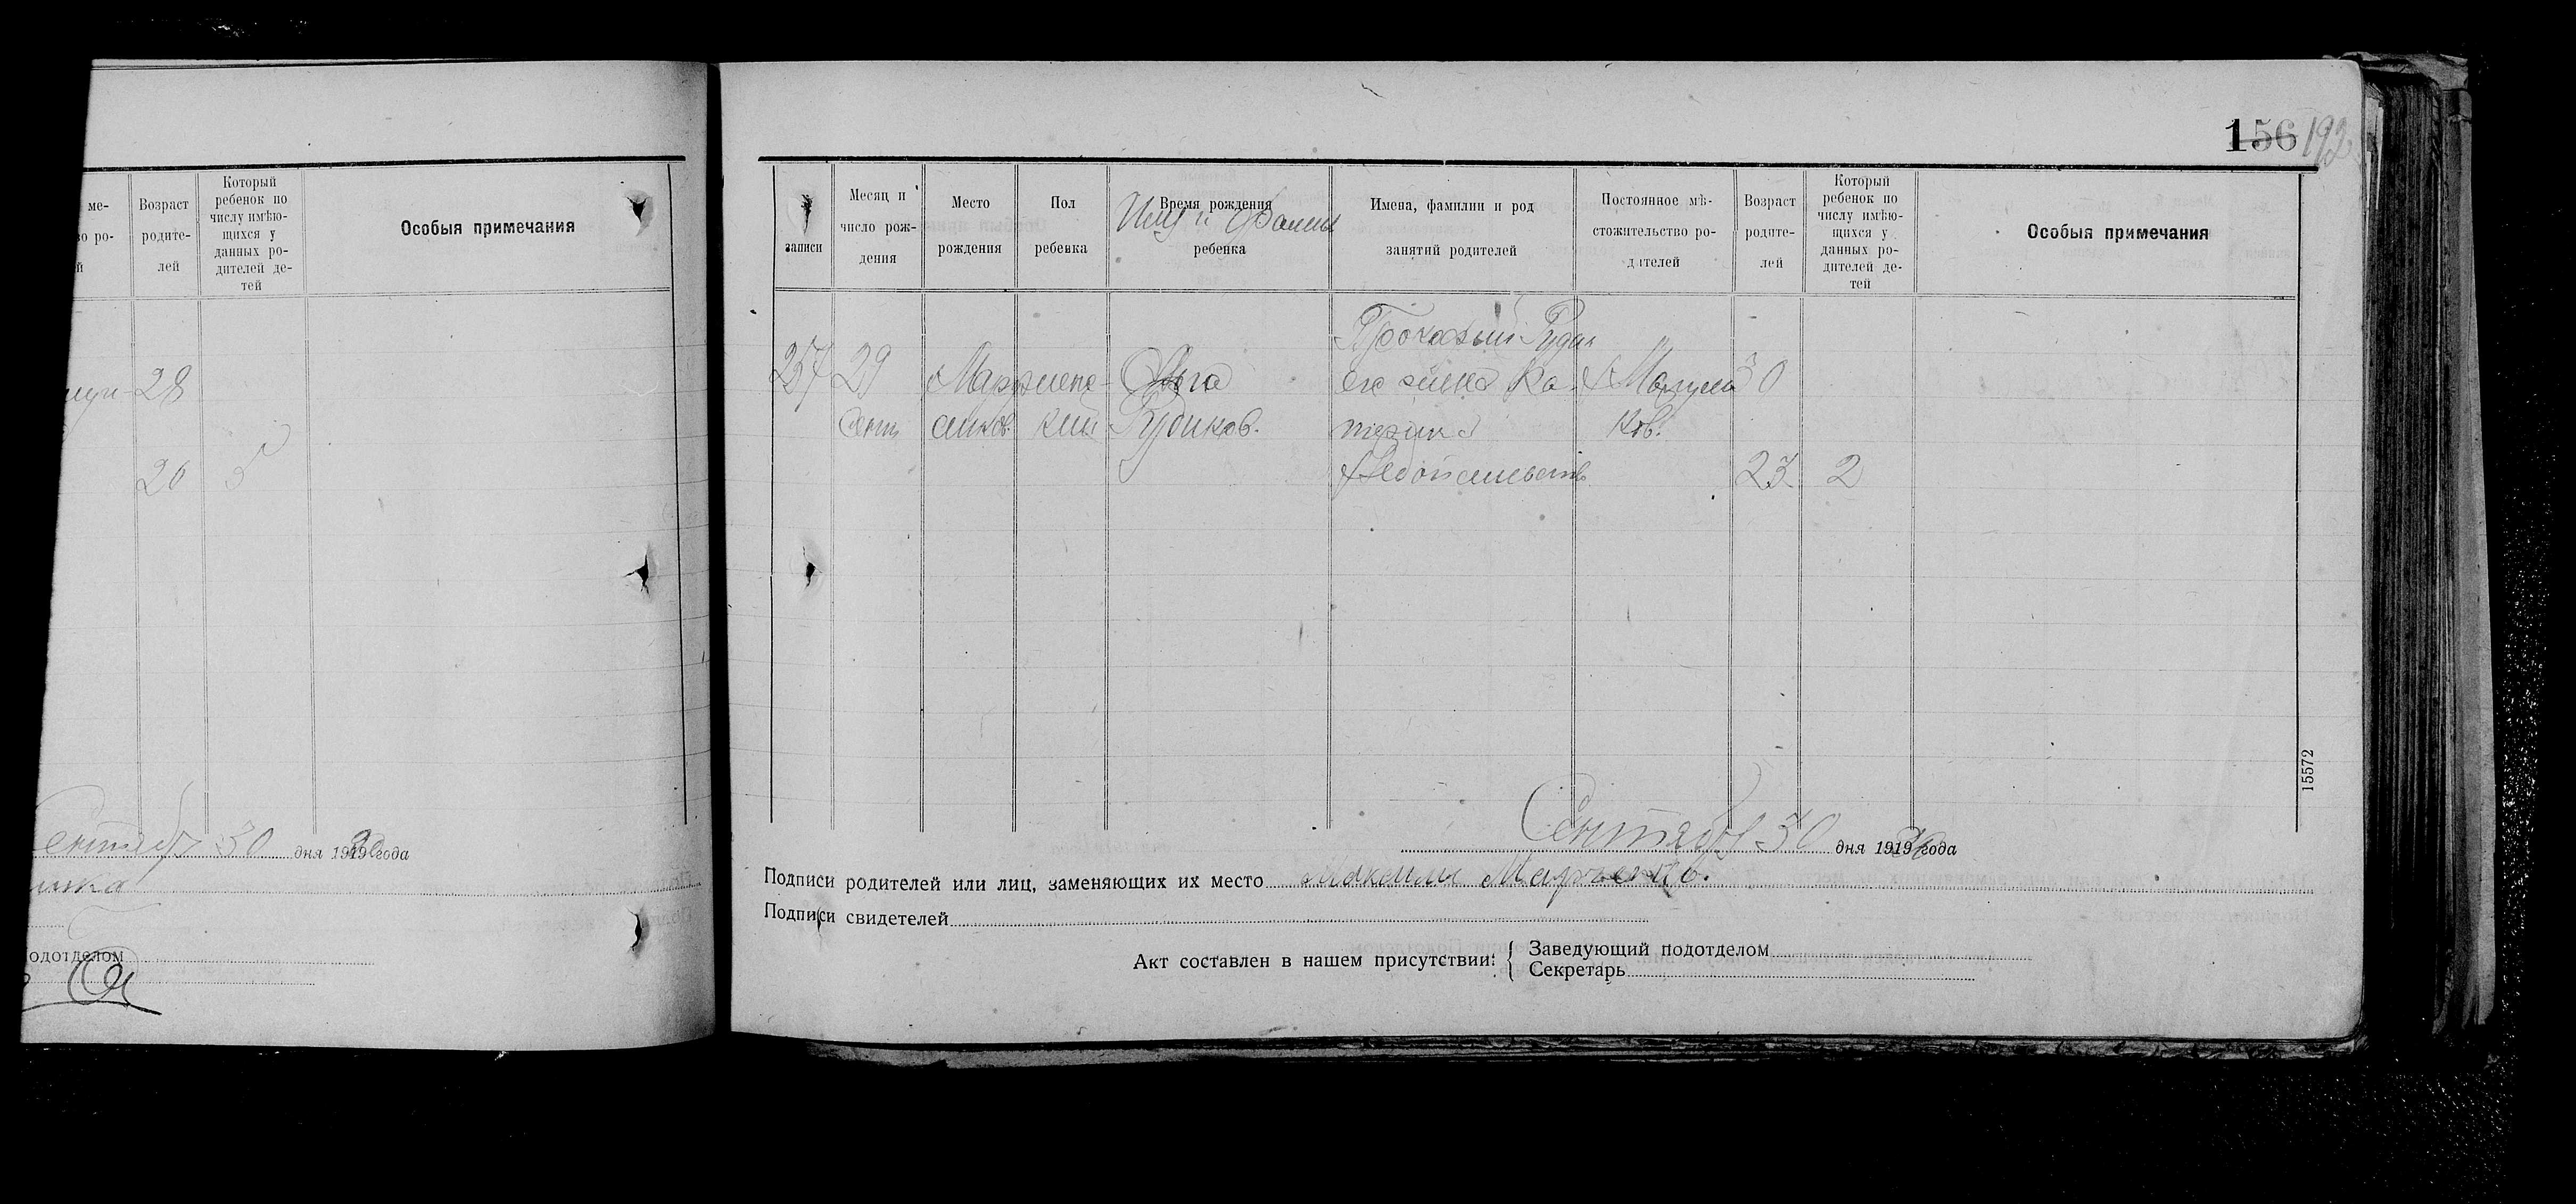 ме-
о ро-
й
Возраст
родите-
лей
Который
ребенок по
числу имѣю-
щихся у
данных ро-
дителей де-
тей
Особыя примечания
28
26 5
30 дня 1919 года
одотделом
156 192
записи
Месяц и
число рож-
дения
Место
рождения
Пол
ребенка
Время рождения
Имя и Фамил
ребенка
Имена, фамилии и род
занятий родителей
Постоянное мѣ-
стожительство ро-
дителей
Возраст
родите-
лей
Который
ребенок по
числу имѣю-
щихся у
данных ро-
дителей де-
тей
Особыя примечания
257 29 Ольга его жена Ка- 30
Сент Рудиков.
23 2
15572
Сентябр 30 дня 1919 года
Подписи родителей или лиц, заменяющих их место
Подписи свидетелей
Акт составлен в нашем присутствии:
Заведующий подотделом
Секретарь